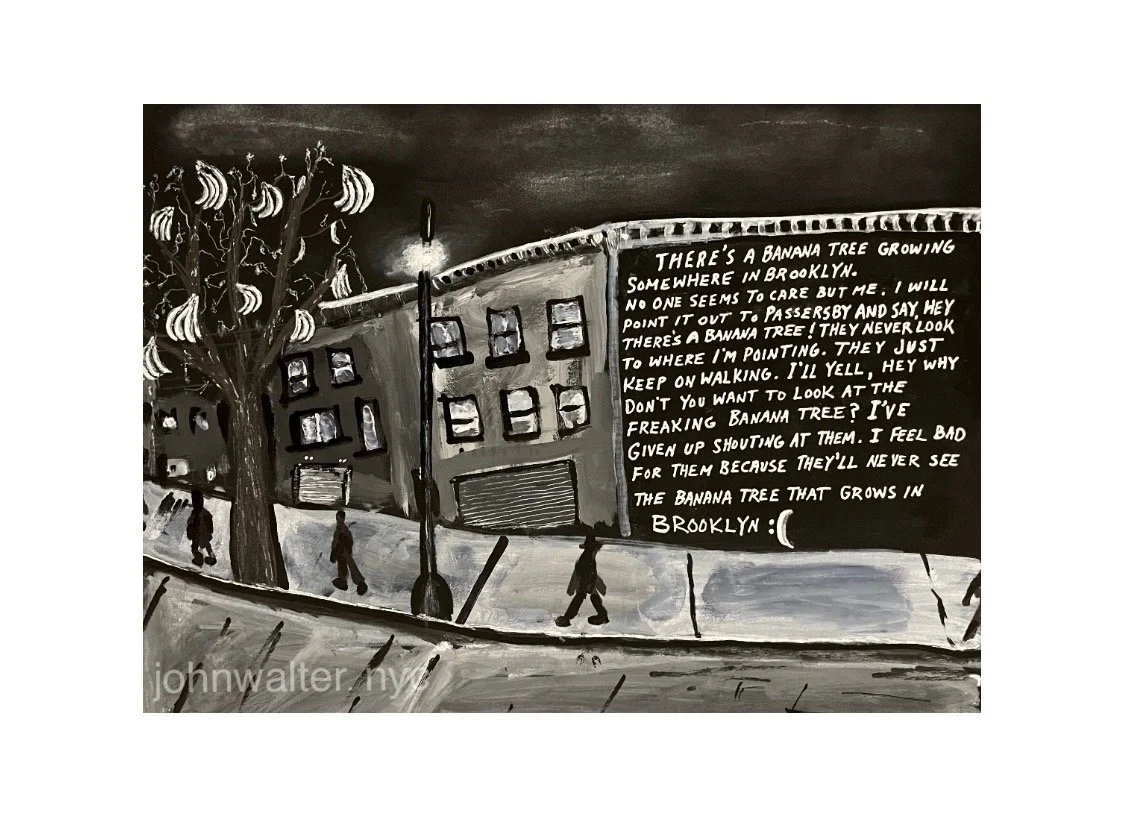 THERE'S A BANANA TREE GROWING
SOMEWHERE IN BROOKLYN.
NO ONE SEEMS TO CARE BUT ME. I WILL
POINT IT OUT TO PASSERSBY AND SAY, HEY
THERE'S A BANANA TREE! THEY NEVER LOOK
TO WHERE I'M POINTING. THEY JUST
KEEP ON WALKING. I'LL YELL, HEY WHY
DON'T YOU WANT TO LOOK AT THE
FREAKING BANANA TREE? I'VE
GIVEN UP SHOUTING AT THEM. I FEEL BAD
FOR THEM BECAUSE THEY'LL NEVER SEE
THE BANANA TREE THAT GROWS IN
BROOKLYN :(
johnwalter.nyc